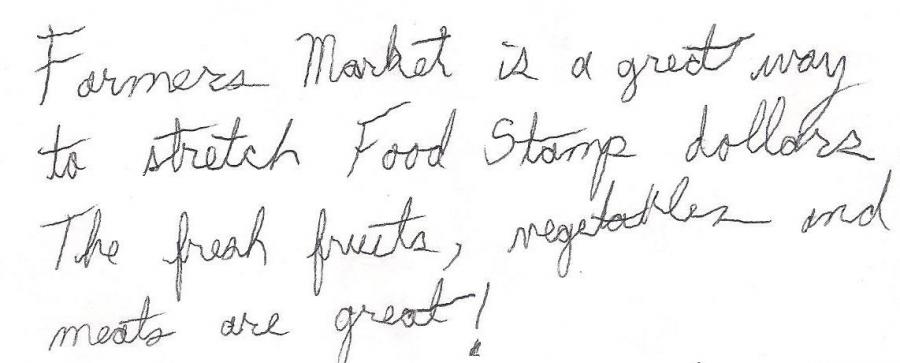 Farmers Market is a great way
to stretch Food Stamp dollars
The fresh fruits, vegetables and
meats are great!